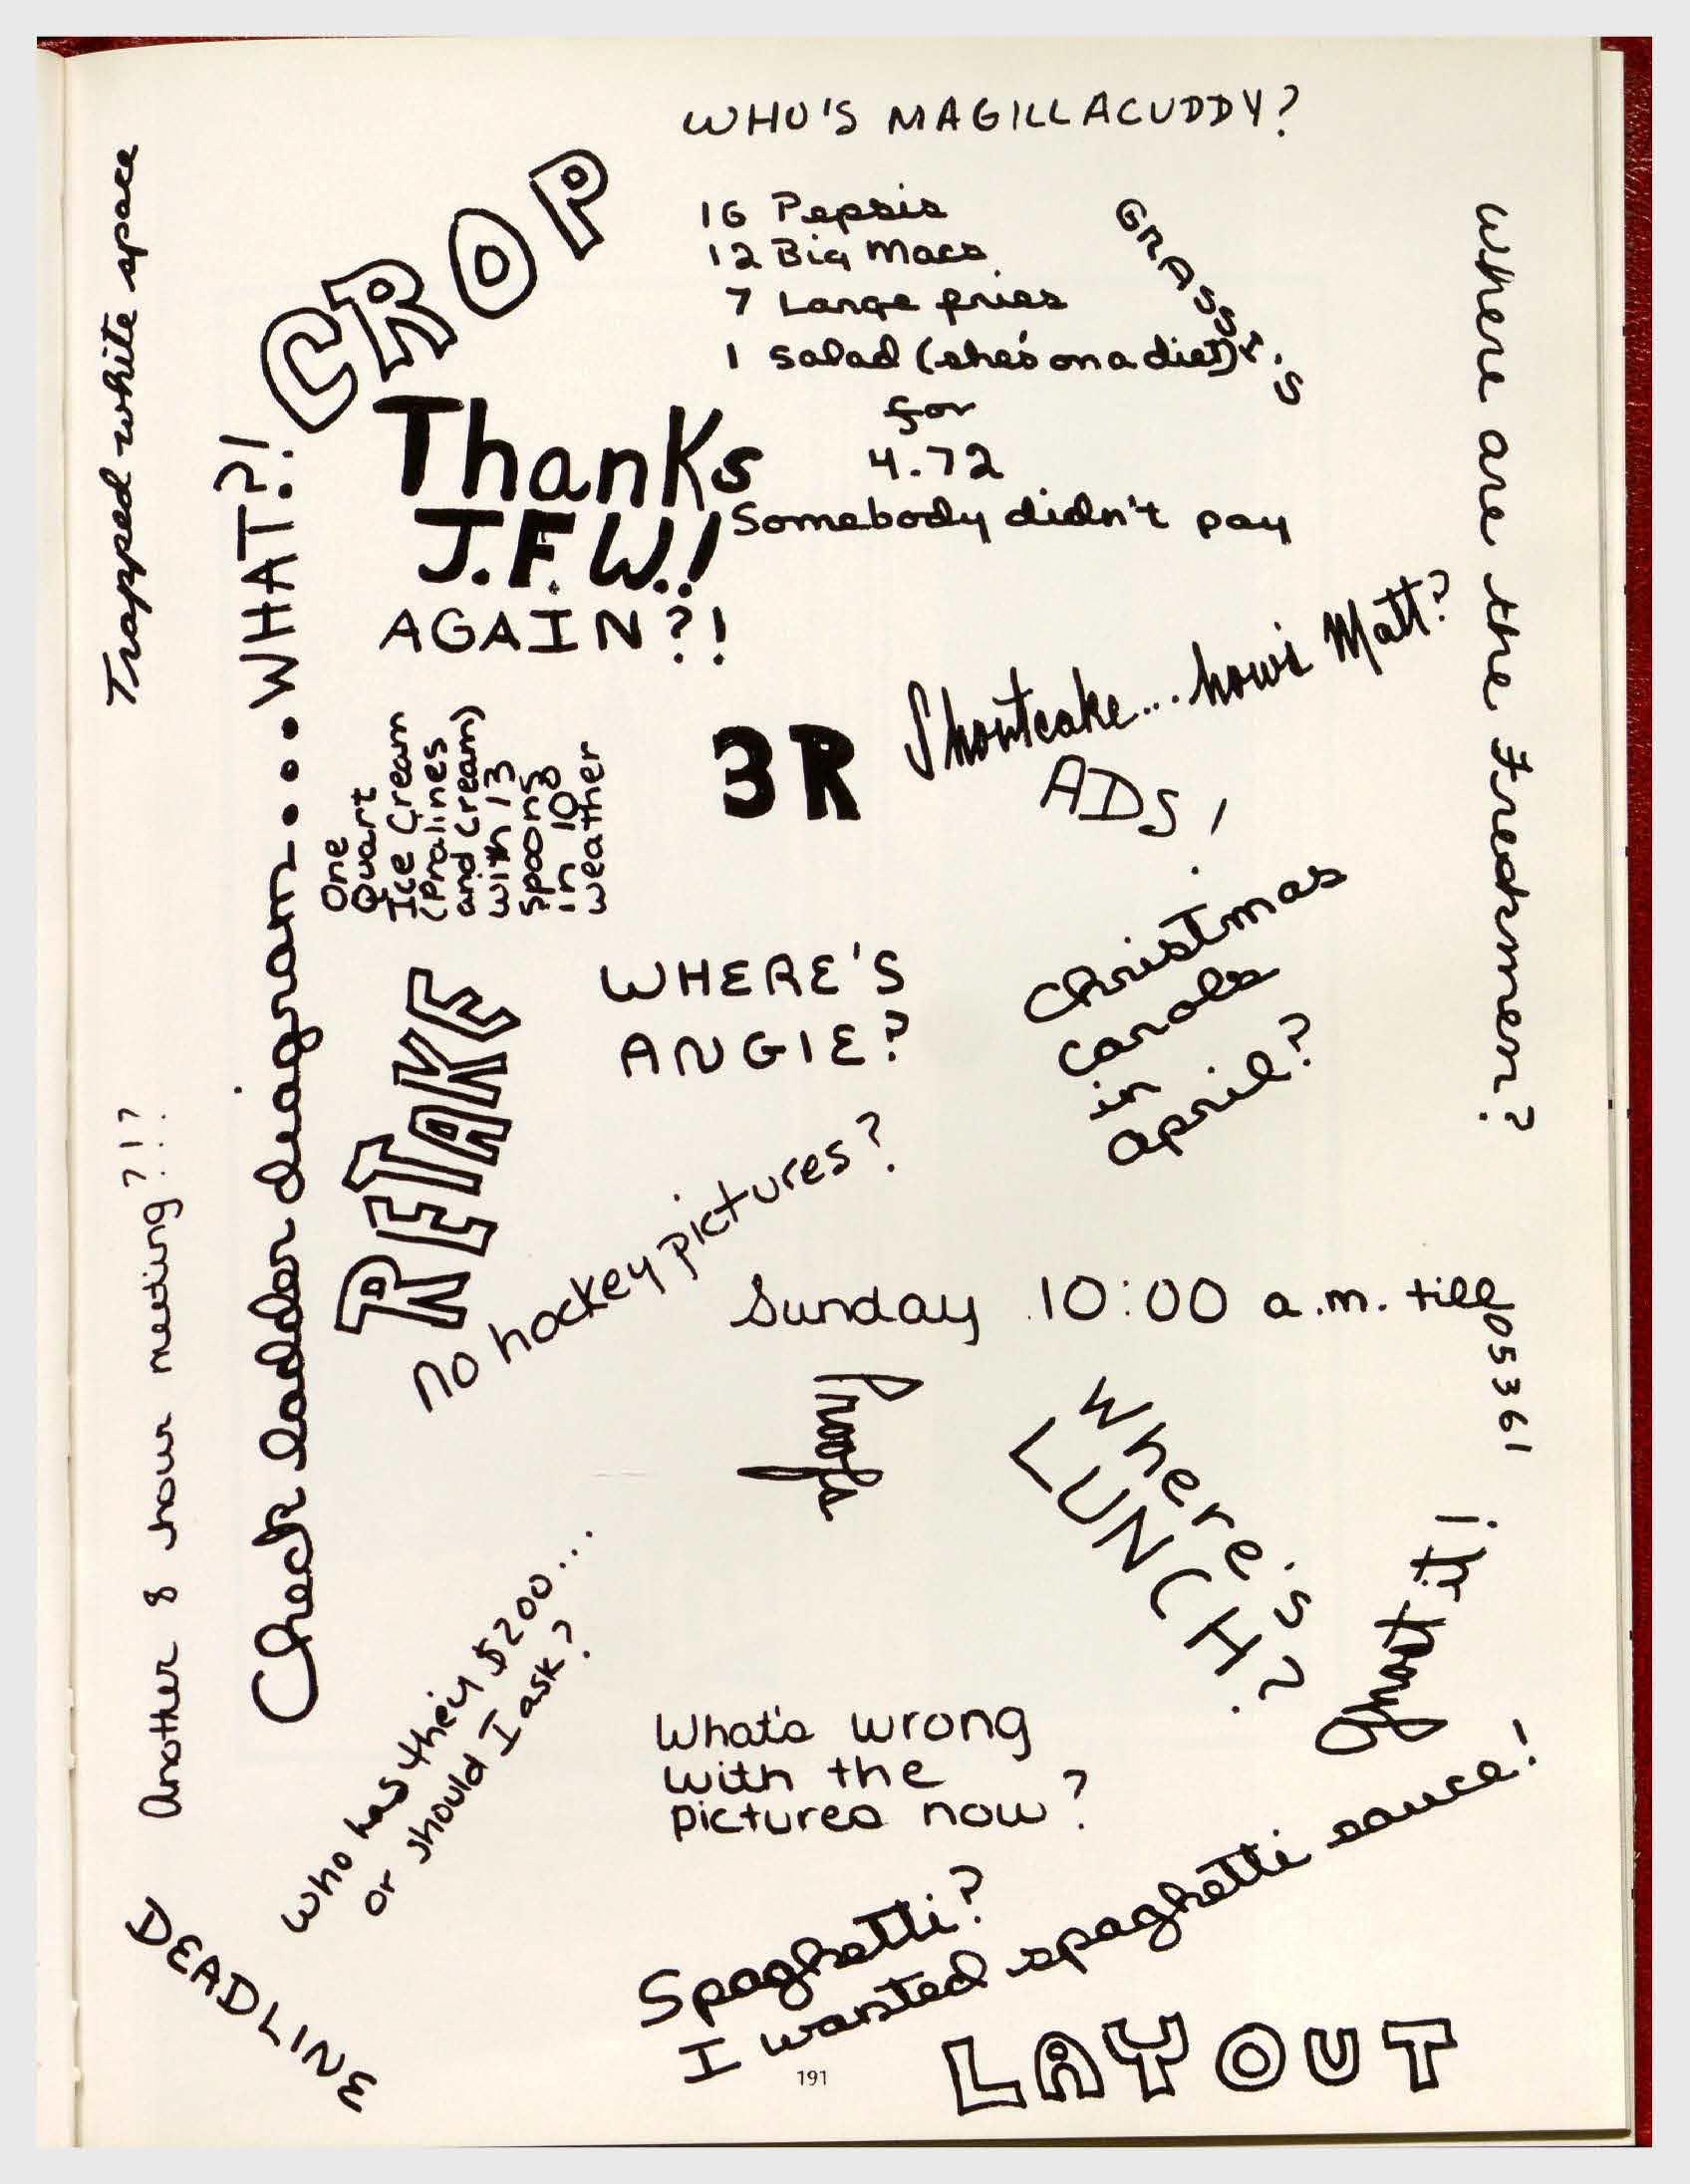 WHO'S MAGILLACUDDY?
Trapped white space
CROP
16 Pepsis
12 Big Macs
7 Large fries
1 salad (she's on a diet)
for
4.72
Somebody didn't pay
GRASSY'S
Where are the Freshmen?
Thanks
J.F.W.!
AGAIN?!
Check ladder diagram...WHAT?!
One
Quart
Ice Cream
(Pralines
and Cream)
with 13
spoons
in 108
weather
3R
Shortcake... how's Matt?
ADS!
WHERE'S
ANGIE?
Christmas
carols
in
april?
RETAKE
No hockey pictures?
Another 8 hour meeting?!?
Sunday 10:00 a.m. till
Where's
LUNCH?
Who has theiy $200...
or should I ask?
What's wrong
with the
pictures now?
Spaghetti?
I wanted spaghetti sauce!
DEADLINE
LAYOUT
191